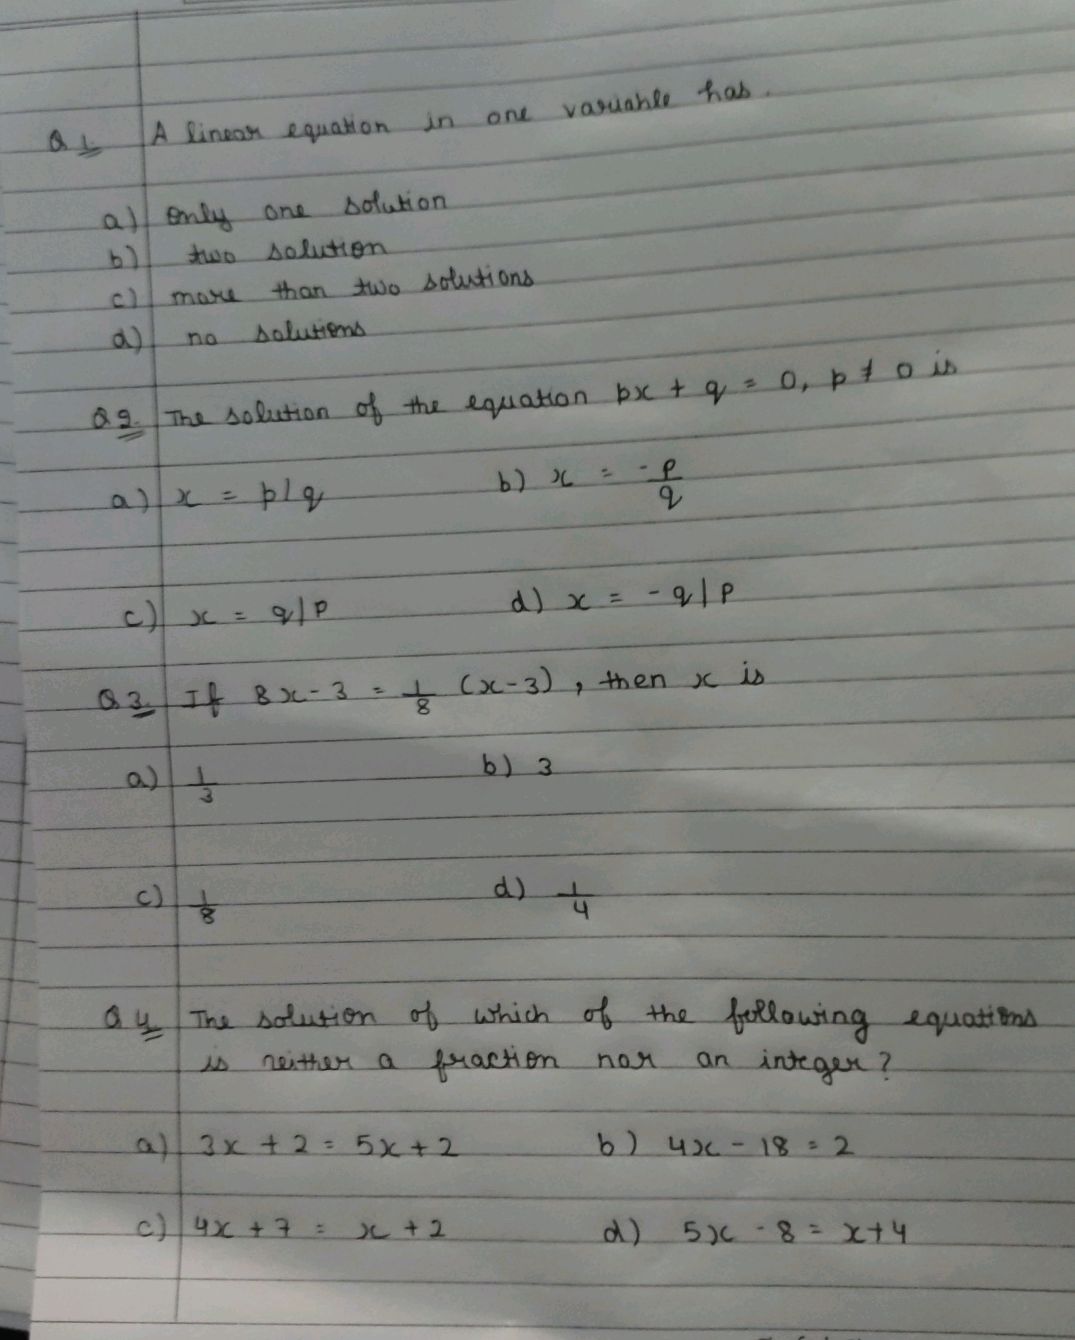 Q 1. A linear equation in one variable has.
a) only one solution
b) two solution
c) more than two solutions
d) no solutions
Q 2. The solution of the equation px + q = 0, p ≠ 0 is
a) x = p/q b) x = -p/q
c) x = q/p d) x = -q/p
Q 3. If 8x - 3 = 1/8 (x-3), then x is
a) 1/3 b) 3
c) 1/8 d) 1/4
Q 4. The solution of which of the following equations
is neither a fraction nor an integer?
a) 3x + 2 = 5x + 2 b) 4x - 18 = 2
c) 4x + 7 = x + 2 d) 5x - 8 = x + 4